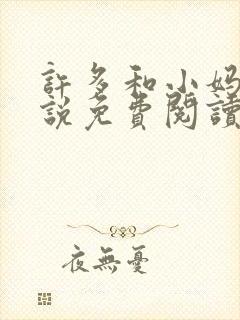 許多和小妈
説免費閱讀
夜無憂